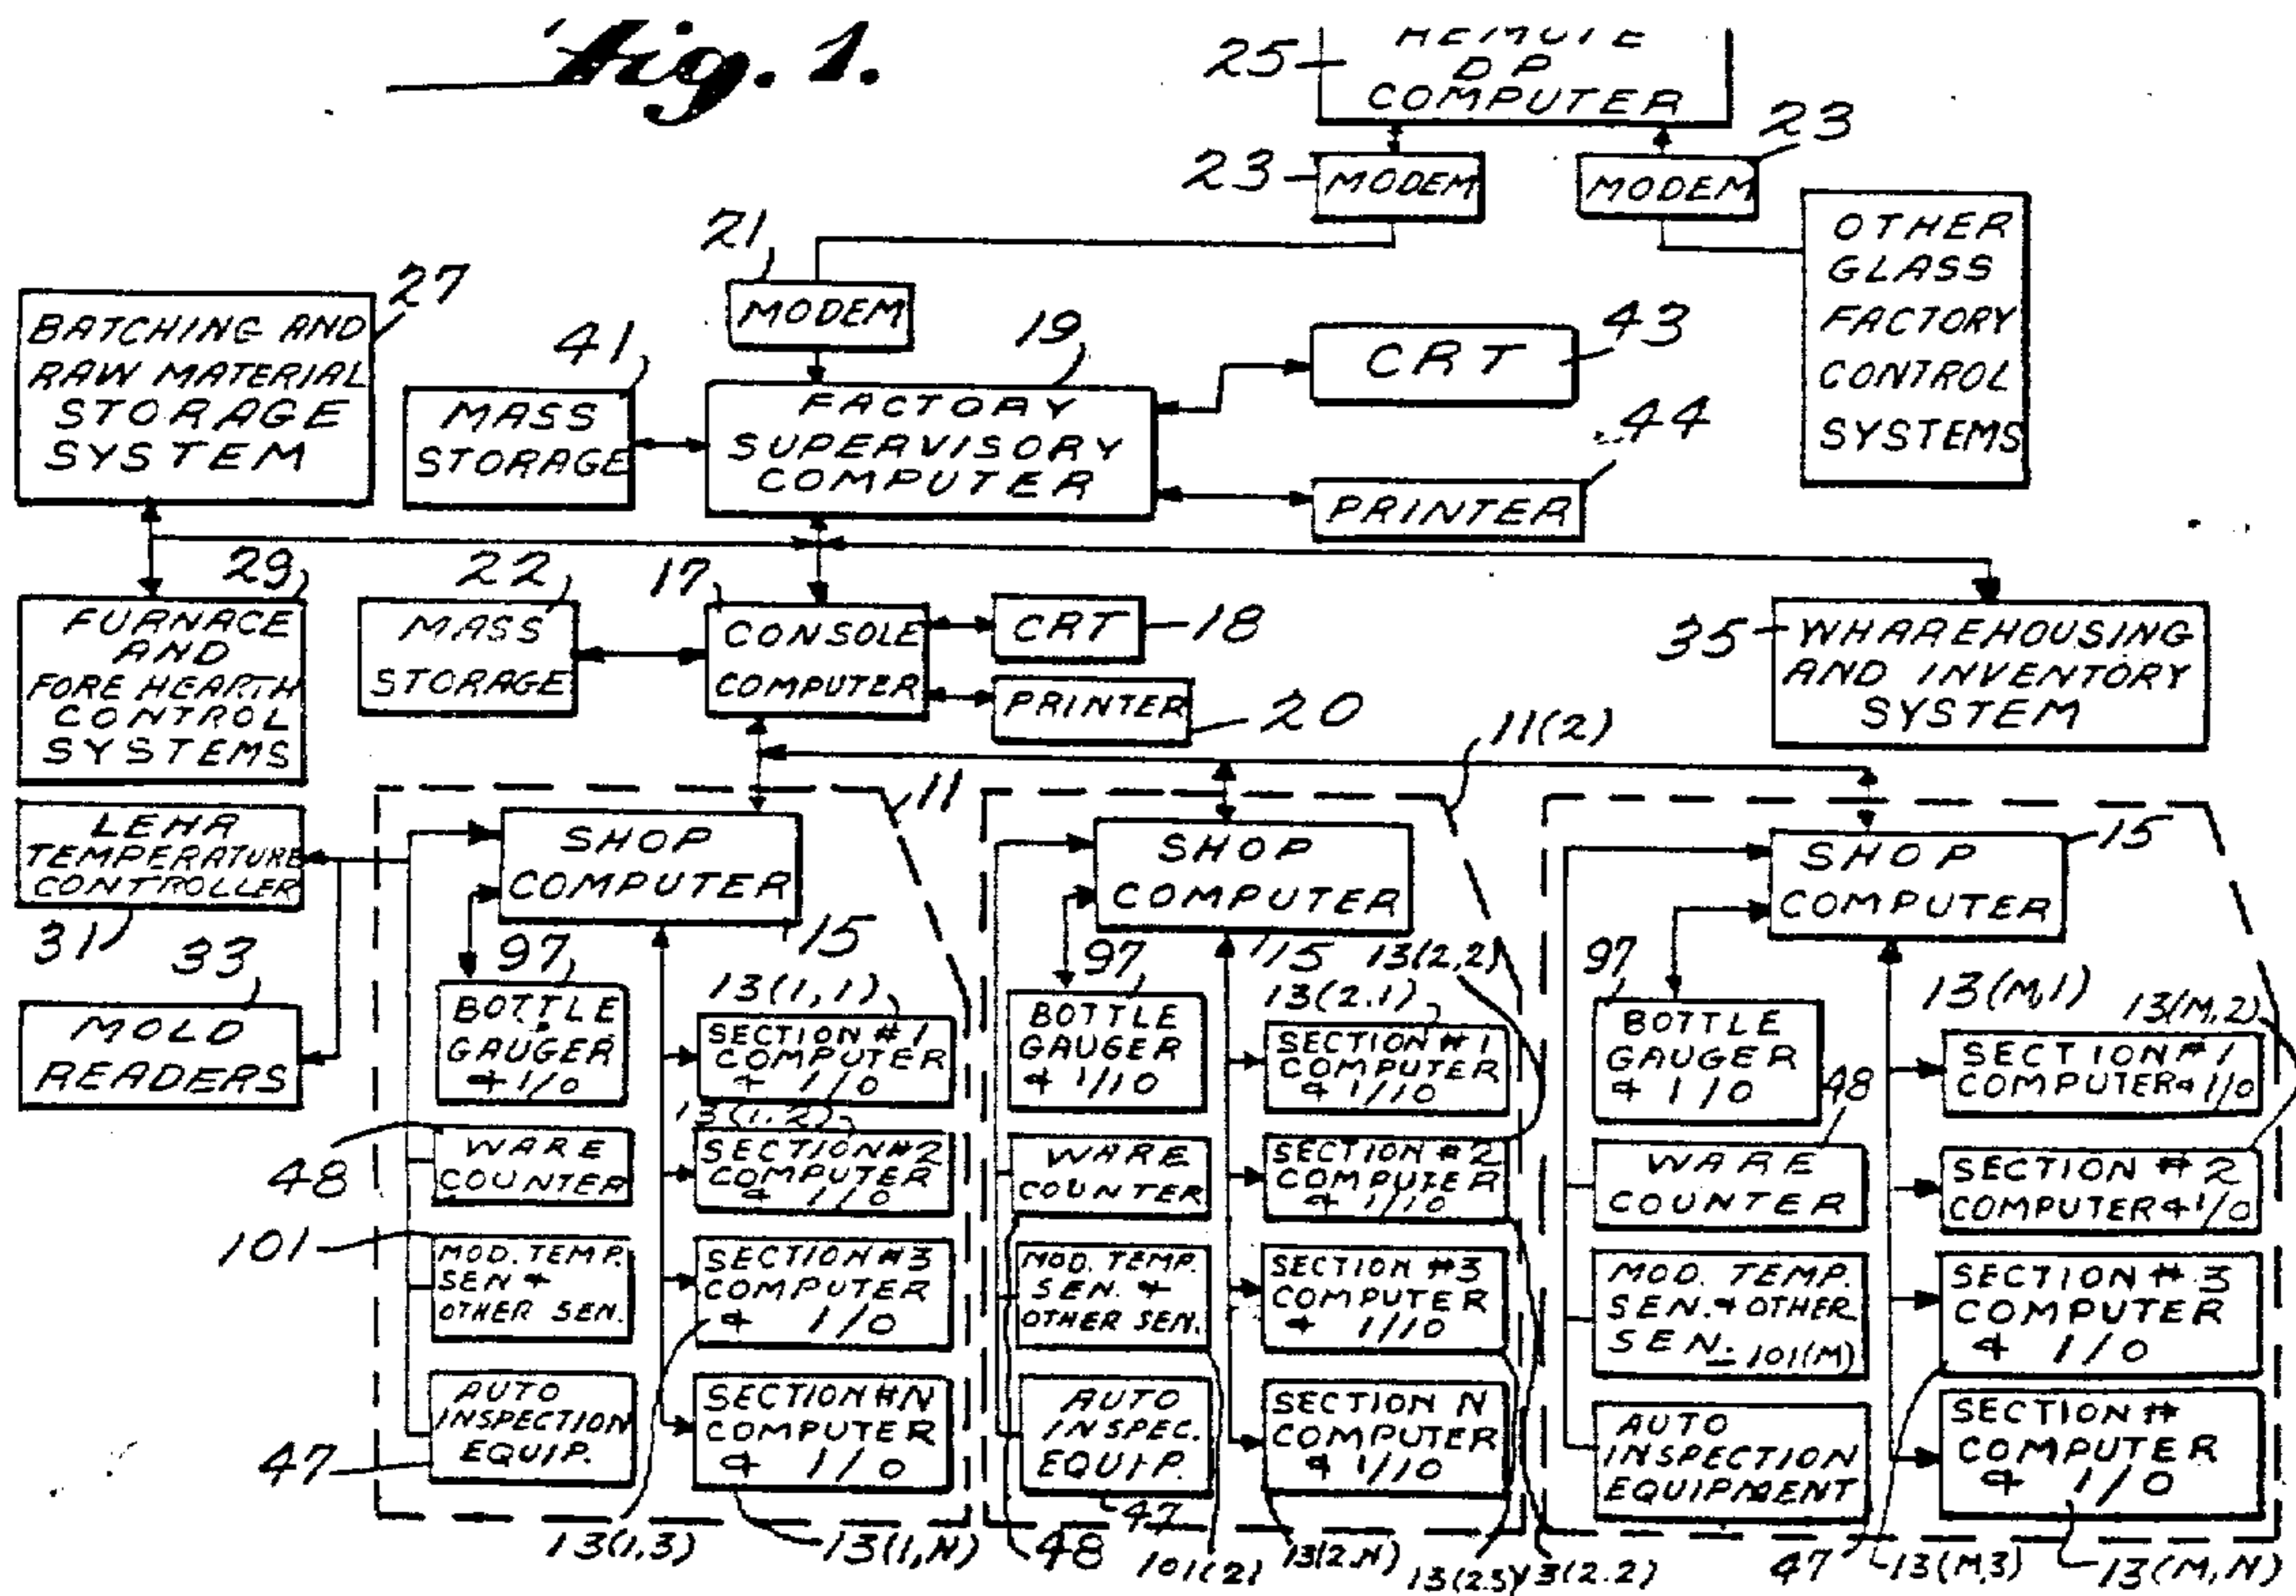 Fig. 1.
25
REMOTE
DP
COMPUTER
23
MODEM
23
MODEM
OTHER
GLASS
FACTORY
CONTROL
SYSTEMS
21
MODEM
27
BATCHING AND
RAW MATERIAL
STORAGE
SYSTEM
41
MASS
STORAGE
19
FACTORY
SUPERVISORY
COMPUTER
43
CRT
44
PRINTER
29
FURNACE
AND
FORE HEARTH
CONTROL
SYSTEMS
22
MASS
STORAGE
17
CONSOLE
COMPUTER
CRT
18
PRINTER
20
35
WHAREHOUSING
AND INVENTORY
SYSTEM
LEHR
TEMPERATURE
CONTROLLER
31
33
MOLD
READERS
11
SHOP
COMPUTER
15
97
BOTTLE
GAUGER
& 1/0
13(1,1)
SECTION #1
COMPUTER
& 1/0
48
WARE
COUNTER
13(1.2)
SECTION #2
COMPUTER
& 1/0
101
MOD. TEMP.
SEN &
OTHER SEN.
SECTION #3
COMPUTER
& 1/0
47
AUTO
INSPECTION
EQUIP.
SECTION #N
COMPUTER
& 1/0
13(1,3)
13(1,N)
11(2)
SHOP
COMPUTER
15
97
BOTTLE
GAUGER
& 1/10
13(2.1)
13(2,2)
SECTION #1
COMPUTER
& 1/10
WARE
COUNTER
SECTION #2
COMPUTER
& 1/10
MOD. TEMP.
SEN. &
OTHER SEN.
SECTION #3
COMPUTER
& 1/10
AUTO
INSPEC.
EQUIP.
SECTION N
COMPUTER
& 1/10
47
48
101(2)
13(2.N)
13(2.3)
13(2.2)
SHOP
COMPUTER
15
97
BOTTLE
GAUGER
& 1/0
13(M,1)
13(M,2)
SECTION #1
COMPUTER & 1/0
48
WARE
COUNTER
SECTION #2
COMPUTER & 1/0
MOD. TEMP.
SEN. & OTHER
SEN. 101(M)
SECTION #3
COMPUTER
& 1/0
AUTO
INSPECTION
EQUIPMENT
SECTION #
COMPUTER
& 1/0
47
13(M,3)
13(M,N)